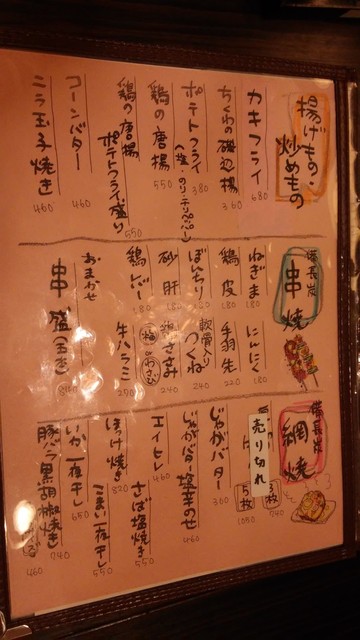 揚げもの・
炒めもの
カキフライ 680
ちくわの磯辺揚 360
ポテトフライ 380
(塩・のり・チリペッパー)
鶏の唐揚 550
鶏の唐揚
ポテトフライ盛り 550
コーンバター 460
ニラ玉子焼き 460
備長炭
串焼
ねぎま 180
にんにく 180
鶏皮 180
手羽先 220
ぼんちり
軟骨入り
つくね 240
砂肝 180
ささみ 240
梅 わさび
鶏レバー 180
牛ハラミ 290
おまかせ
串盛(五本)
備長炭
網焼
売り切れ
3枚 740
5枚 1050
じゃがバター 300
じゃがバター塩辛のせ 460
エイヒレ 460
さば塩焼き 550
ほっけ焼き 820
こまい一夜干し 550
いか一夜干し 650
豚バラ黒胡椒焼き 740
460